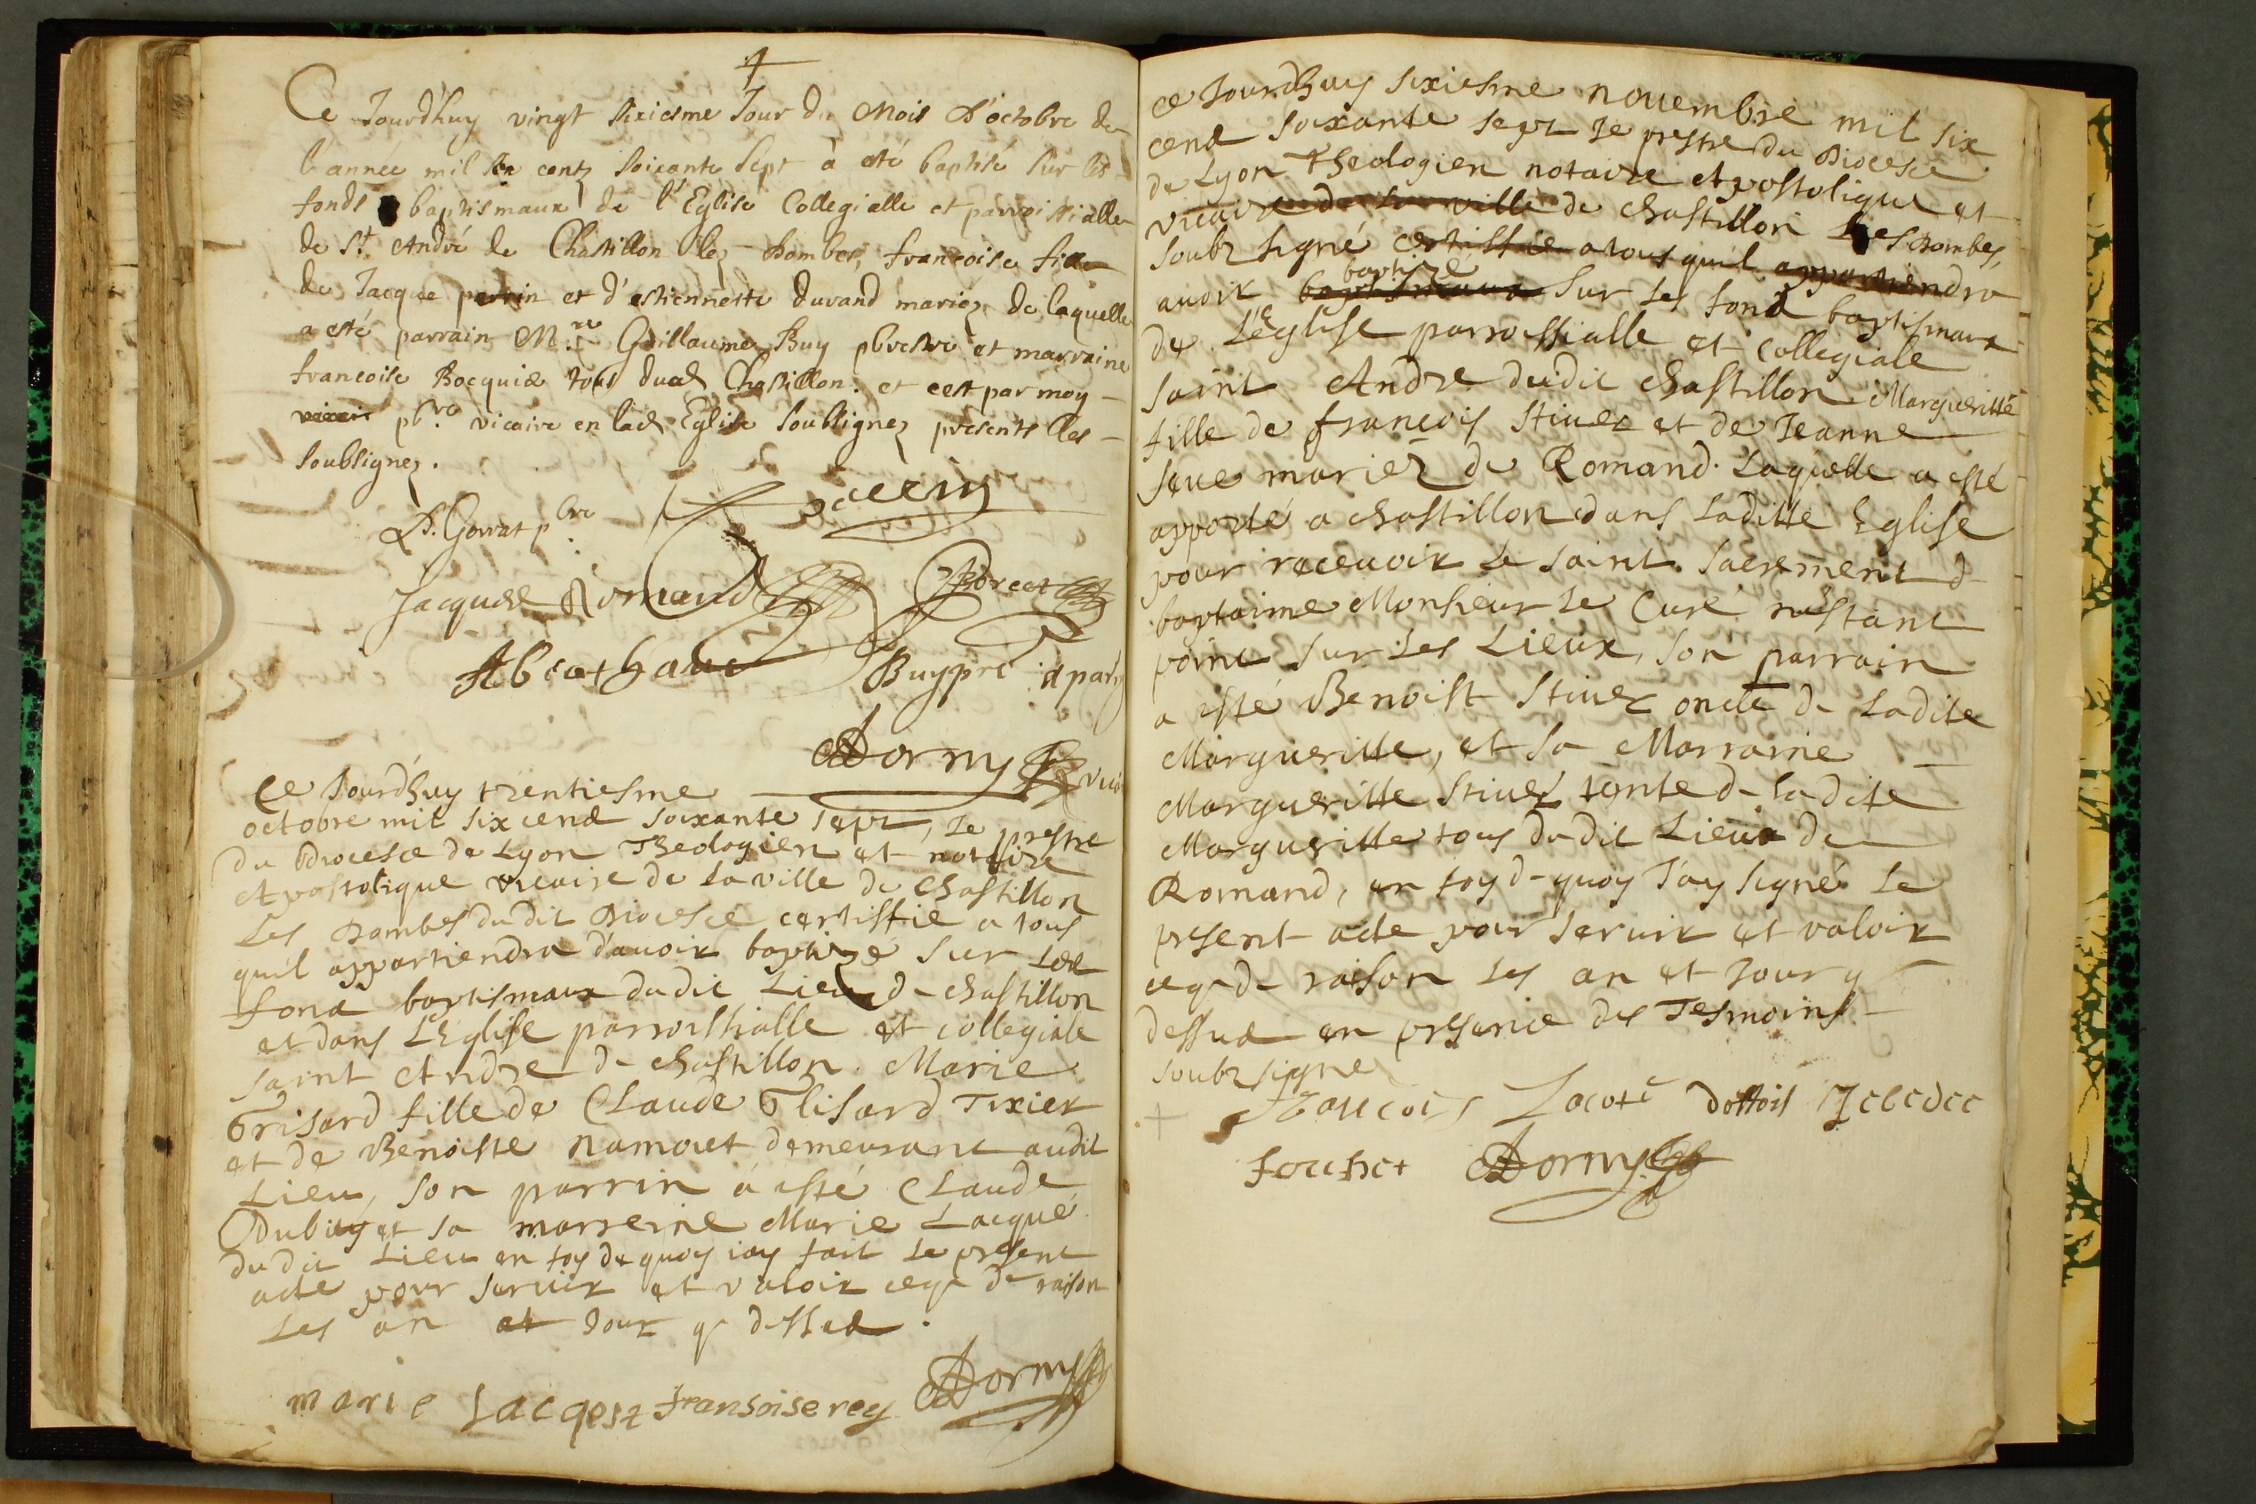 Ce Jourd'huy vingt sixiesme Jour du Mois d'octobre de
l'année mil six centz soixante sept à eté baptisé sur les
fonds baptismaux de l'Eglise Collegialle et parroissialle
de St. André de Chastillon lez Dombes, francoise fille
de Jacque perrin et d'estiennette durand mariez de laquelle
a eté parrain Mre Guillaume Buy pbrestre et marraine
francoise Bocquié tous dud Chastillon. et cest par moy
vicair pbre vicaire en lad Eglise soubsignez presents les
soubsignez.
Gorrat pbre
Jacques Romand
Buy pre
Dorny
Ce Jourdhuy trentiesme
octobre mil six cend soixante sept, Je prestre
du diocesce de Lyon Theologien et notaire
Apostolique vicaire de la ville de Chastillon
Les Dombes dudit Diocesce certiffie a tous
quil appartiendra d'auoir baptize sur Les
fond baptismaux dudit Lieu de chastillon
et dans L'Eglise parroissialle et collegiale
saint Andre de chastillon. Marie
Grisard fille de Claude Glisard Tixier
et de Benoiste namouet demeurant audit
Lieu, son parrin á esté Claude
Dubuy et sa marreine Marie Lacque
dudit Lieu en foy de quoy iay fait Le present
acte pour seruir et valoir ceque de raison
Les an et Jour que dessus.
marie Jacqest fransoise rey Dorny
ce Jourdhuy sixiesme nouembre mil six
cend soixante sept Je prestre du Diocesce
de Lyon Theologien notaire Apostolique et
vicaire de la ville de chastillon Les Dombes,
soubz signé certiffie a tous quil appartiendra
baptizé
auoir baptismaux sur Les fond baptismaux
de L'Eglise parroissialle et collegiale
saint Andre dudit chastillon Margueritte
fille de françois Stiuez et de Jeanne
seue mariez de Romand. Laquelle a esté
apporté a chastillon dans Laditte Eglise
pour receuoir Le saint sacrement de
baptaime Monsieur Le Curé nestant
point sur Les Lieux, son parrain
a esté Benoist Stiuez oncle de Ladite
Margueritte, et sa Marraine
Margueritte Stiuez tante de Ladite
Margueritte tous dudit Lieux de
Romand, en foy de quoy J'ay signé Le
present acte pour seruir et valoir
ceque de raison Les an et Jour que
dessus en presence des Tesmoins
soubz signe
francois Lacote
fouchet Dorny